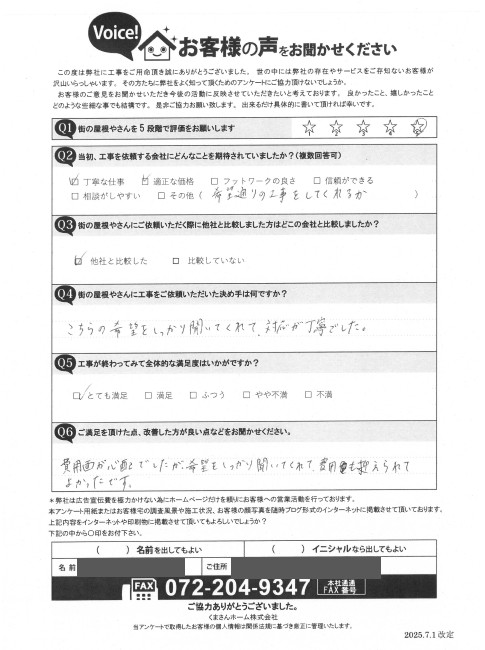 Voice!
お客様の声をお聞かせください
この度は弊社に工事をご用命頂き誠にありがとうございました。世の中には弊社の存在やサービスをご存知ないお客様が
沢山いらっしゃいます。その方たちに弊社をよく知って頂くためのアンケートにご協力頂けないでしょうか。
お客様のご意見をお聞かせいただき今後の活動に反映させていただきたいと考えております。良かったこと、嬉しかったこと
どのような些細な事でも結構です。是非ご協力お願い致します。出来るだけ具体的に書いて頂ければ幸いです。
Q1 街の屋根やさんを5段階で評価をお願いします
1 2 3 4 5
Q2 当初、工事を依頼する会社にどんなことを期待されていましたか?(複数回答可)
☑ 丁寧な仕事 ☑ 適正な価格 □ フットワークの良さ □ 信頼ができる
□ 相談がしやすい □ その他 ( 希望通りの工事をしてくれるか )
Q3 街の屋根やさんにご依頼いただく際に他社と比較しました方はどこの会社と比較しましたか?
☑ 他社と比較した □ 比較していない
Q4 街の屋根やさんに工事をご依頼いただいた決め手は何ですか?
こちらの希望をしっかり聞いてくれて、対応が丁寧でした。
Q5 工事が終わってみて全体的な満足度はいかがですか?
☑ とても満足 □ 満足 □ ふつう □ やや不満 □ 不満
Q6 ご満足を頂けた点、改善した方が良い点などをお聞かせください。
費用面が心配でしたが、希望をしっかり聞いてくれて、費用も抑えられて
よかったです。
*弊社は広告宣伝費を極力かけない為にホームページだけを頼りにお客様への営業活動を行っております。
本アンケート用紙またはお客様宅の調査風景や施工状況、お客様の顔写真を随時ブログ形式のインターネットに掲載させて頂いております。
上記内容をインターネットや印刷物に掲載させて頂いてもよろしいでしょうか?
下記の中から〇印をお付下さい。
( ) 名前を出してもよい ( ) イニシャルなら出してもよい
名前 ご住所
FAX 072-204-9347 本社直通 FAX 番号
ご協力ありがとうございました。
くまさんホーム株式会社
当アンケートで取得したお客様の個人情報は関係法規に基づき適正に管理いたします。
2025.7.1 改定